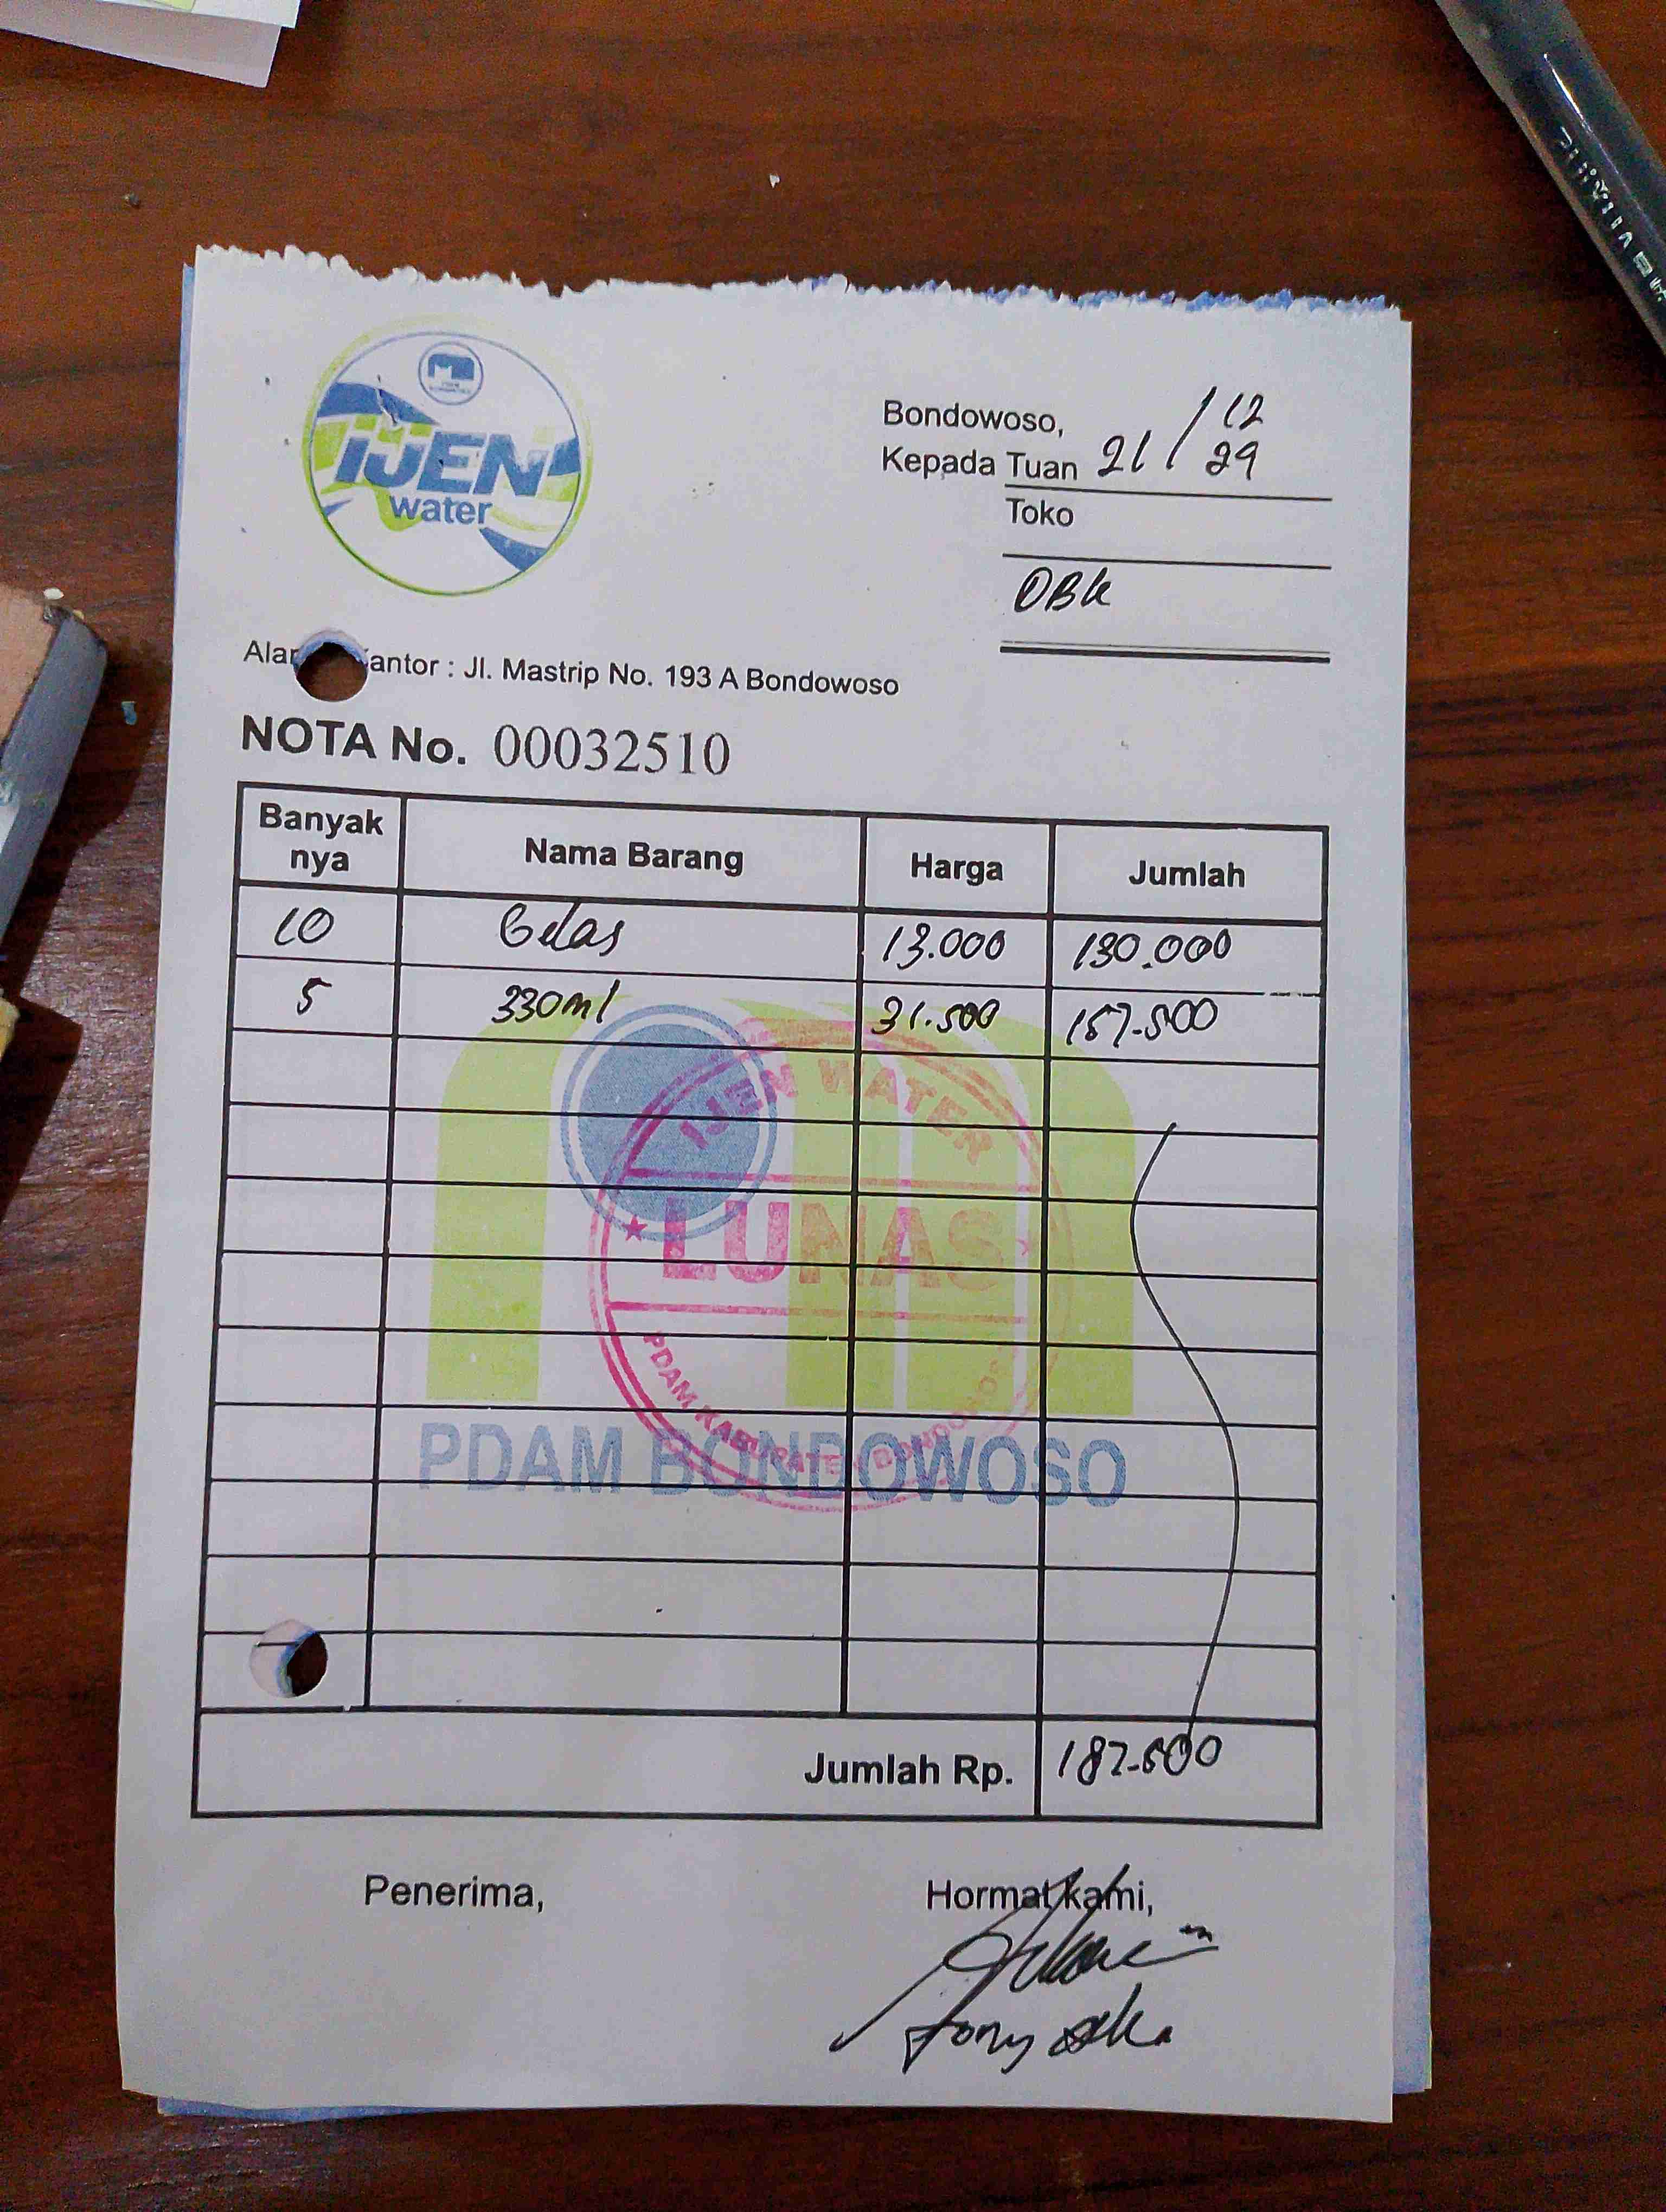 iJEN
water
Bondowoso,
21/12
29
Kepada Tuan
Toko
OBK
Kantor : Jl. Mastrip No. 193 A Bondowoso
NOTA No. 00032510
Banyak nya Nama Barang Harga Jumlah
10 Gelas 13.000 130.000
5 330ml 31.500 157.500
IJEN WATER
LUNAS
PDAM BONDOWOSO
Jumlah Rp. 187.500
Penerima, Hormat kami,